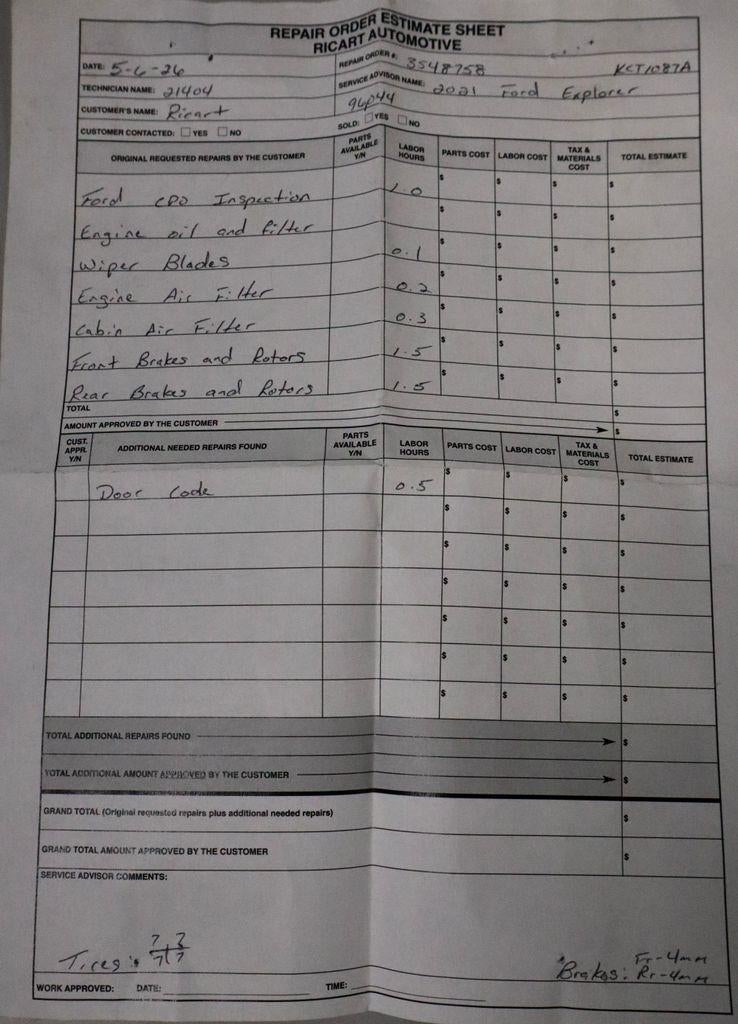 REPAIR ORDER ESTIMATE SHEET
RICART AUTOMOTIVE
DATE: 5-6-26 REPAIR ORDER #: 3548758 KCT1087A
TECHNICIAN NAME: 21404 SERVICE ADVISOR NAME: 2021 Ford Explorer
CUSTOMER'S NAME: Ricart 96044
CUSTOMER CONTACTED: ☐ YES ☐ NO SOLD: ☐ YES ☐ NO
ORIGINAL REQUESTED REPAIRS BY THE CUSTOMER PARTS AVAILABLE Y/N LABOR HOURS PARTS COST LABOR COST TAX & MATERIALS COST TOTAL ESTIMATE
Ford CPO Inspection 1.0 $ $ $ $
Engine oil and filter $ $ $ $
Wiper Blades 0.1 $ $ $ $
Engine Air Filter 0.2 $ $ $ $
Cabin Air Filter 0.3 $ $ $ $
Front Brakes and Rotors 1.5 $ $ $ $
Rear Brakes and Rotors 1.5 $ $ $ $
TOTAL $
AMOUNT APPROVED BY THE CUSTOMER $
CUST. APPR. Y/N ADDITIONAL NEEDED REPAIRS FOUND PARTS AVAILABLE Y/N LABOR HOURS PARTS COST LABOR COST TAX & MATERIALS COST TOTAL ESTIMATE
Door Code 0.5 $ $ $ $
$ $ $ $
$ $ $ $
$ $ $ $
$ $ $ $
$ $ $ $
$ $ $ $
TOTAL ADDITIONAL REPAIRS FOUND $
TOTAL ADDITIONAL AMOUNT APPROVED BY THE CUSTOMER $
GRAND TOTAL (Original requested repairs plus additional needed repairs) $
GRAND TOTAL AMOUNT APPROVED BY THE CUSTOMER $
SERVICE ADVISOR COMMENTS:
Tires: 7 7
7 7
Brakes: Fr-4mm
Rr-4mm
WORK APPROVED: DATE: TIME: